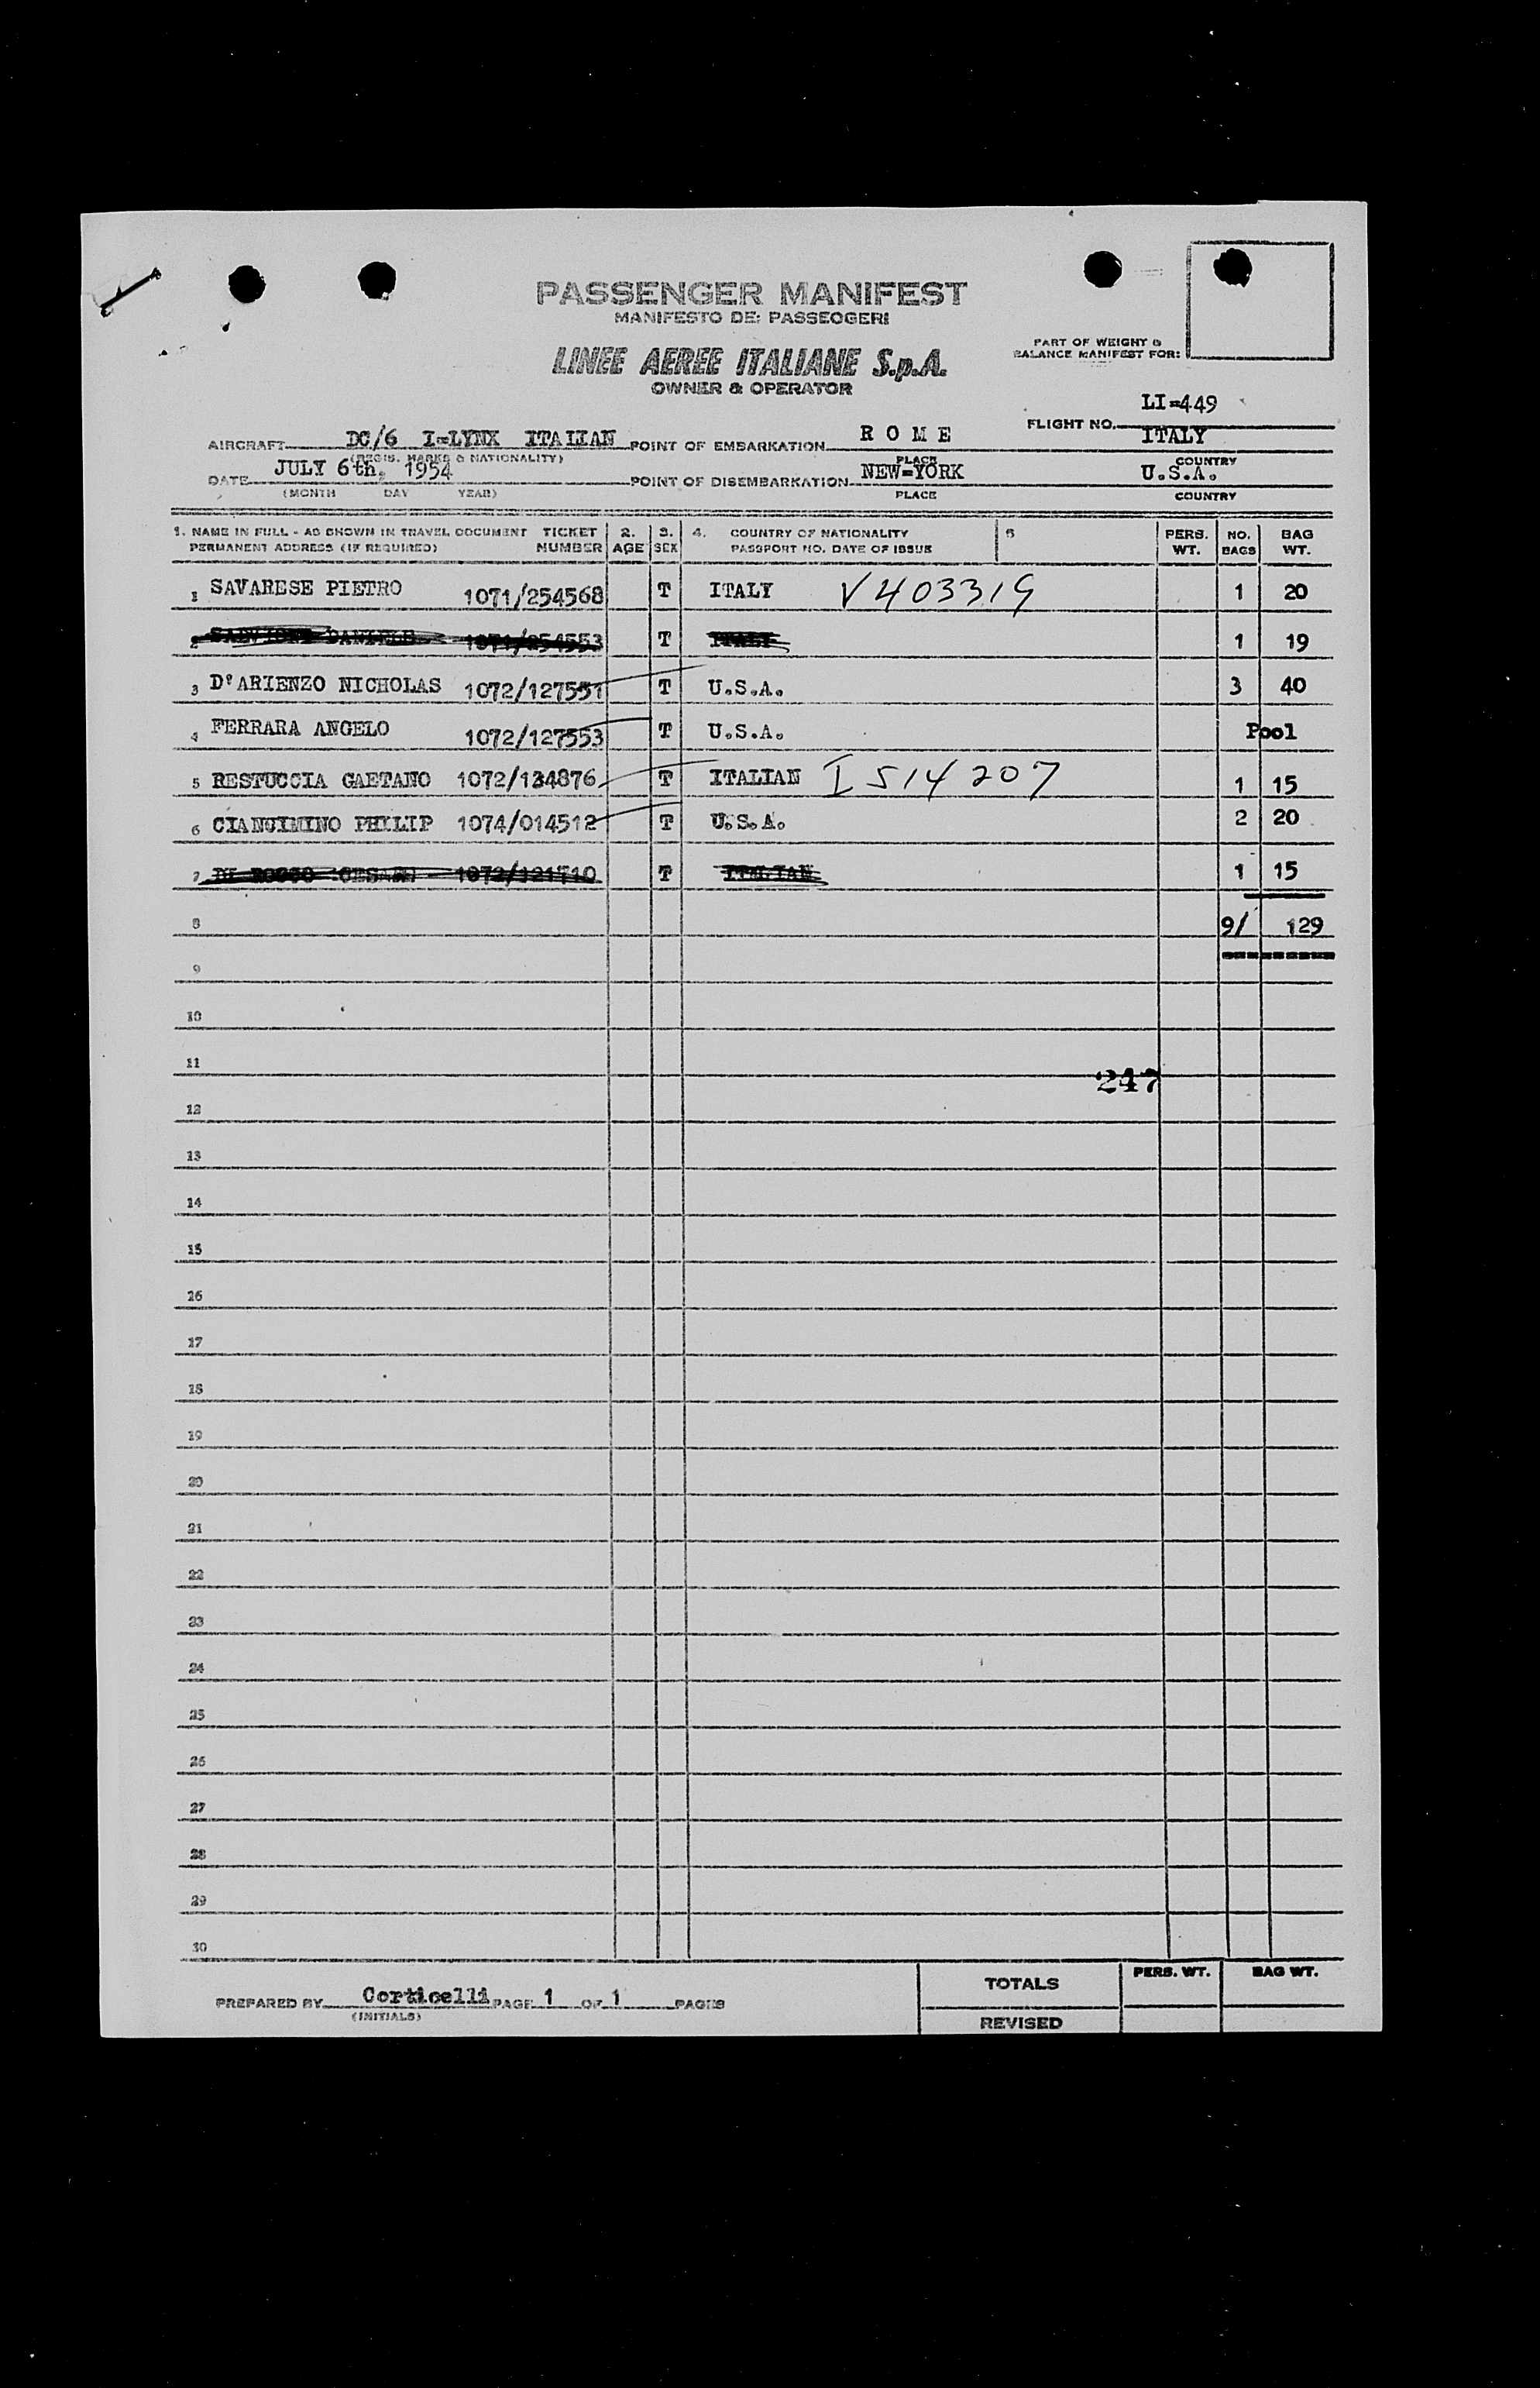 PASSENGER MANIFEST
MANIFESTO DEI PASSEGGERI
LINEE AEREE ITALIANE S.p.A.
OWNER & OPERATOR
PART OF WEIGHT &
BALANCE MANIFEST FOR:
FLIGHT NO. LI-449
AIRCRAFT DC/6 I-LYNX ITALIAN POINT OF EMBARKATION R O M E ITALY
(REGIS. MARKS & NATIONALITY) PLACE COUNTRY
DATE JULY 6th, 1954 POINT OF DISEMBARKATION NEW-YORK U.S.A.
(MONTH DAY YEAR) PLACE COUNTRY
1. NAME IN FULL - AS SHOWN IN TRAVEL DOCUMENT TICKET 2. 3. 4. COUNTRY OF NATIONALITY 5 PERS. NO. BAG
PERMANENT ADDRESS (IF REQUIRED) NUMBER AGE SEX PASSPORT NO. DATE OF ISSUE WT. BAGS WT.
1 SAVARESE PIETRO 1071/254568 T ITALY V403319 1 20
2 DANIELE 1071/254553 T ITALY 1 19
3 D'ARIENZO NICHOLAS 1072/127551 T U.S.A. 3 40
4 FERRARA ANGELO 1072/127553 T U.S.A. Pool
5 RESTUCCIA GAETANO 1072/134876 T ITALIAN I514207 1 15
6 CIANCIMINO PHILIP 1074/014512 T U.S.A. 2 20
7 DI ROCCO CESARE 1072/121710 T ITALIAN 1 15
8 9/ 129
9
10
11
247
12
13
14
15
16
17
18
19
20
21
22
23
24
25
26
27
28
29
30
PREPARED BY Corticelli PAGE 1 OF 1 PAGES TOTALS PERS. WT. BAG WT.
(INITIALS) REVISED